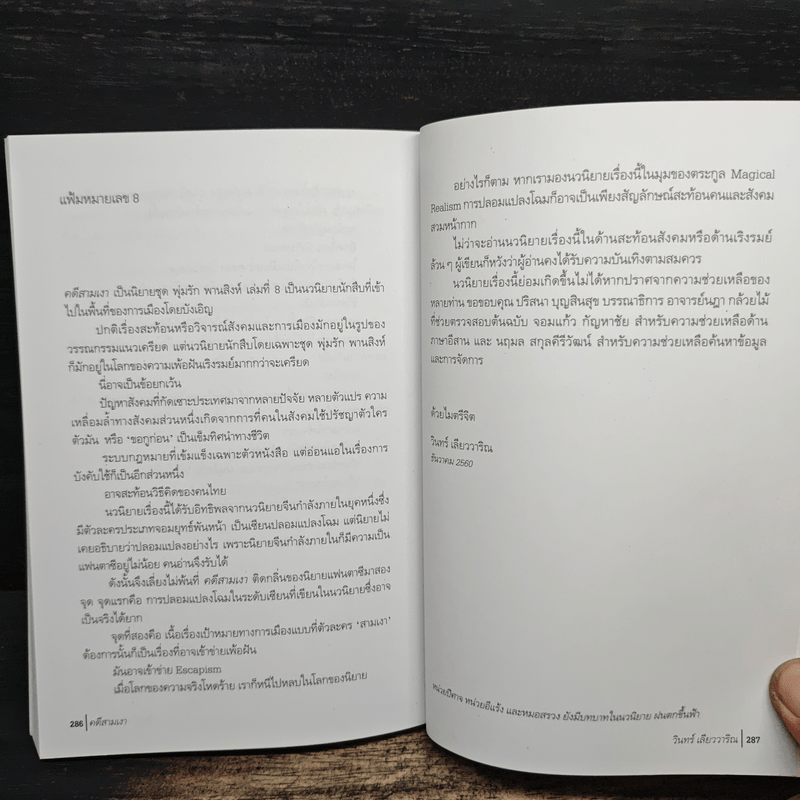 แฟ้มหมายเลข 8
คดีสามเงา เป็นนิยายชุด พุ่มรัก พานสิงห์ เล่มที่ 8 เป็นนวนิยายนักสืบที่เข้า
ไปในพื้นที่ของการเมืองโดยบังเอิญ
ปกติเรื่องสะท้อนหรือวิจารณ์สังคมและการเมืองมักอยู่ในรูปของ
วรรณกรรมแนวเครียด แต่นวนิยายนักสืบโดยเฉพาะชุด พุ่มรัก พานสิงห์
ก็มักอยู่ในโลกของความเพ้อฝันเริงรมย์มากกว่าจะเครียด
นี่อาจเป็นข้อยกเว้น
ปัญหาสังคมที่กัดเซาะประเทศมาจากหลายปัจจัย หลายตัวแปร ความ
เหลื่อมล้ำทางสังคมส่วนหนึ่งเกิดจากการที่คนในสังคมใช้ปรัชญาตัวใคร
ตัวมัน หรือ ‘ขอกูก่อน’ เป็นเข็มทิศนำทางชีวิต
ระบบกฎหมายที่เข้มแข็งเฉพาะตัวหนังสือ แต่อ่อนแอในเรื่องการ
บังคับใช้ก็เป็นอีกส่วนหนึ่ง
อาจสะท้อนวิธีคิดของคนไทย
นวนิยายเรื่องนี้ได้รับอิทธิพลจากนวนิยายจีนกำลังภายในยุคหนึ่งซึ่ง
มีตัวละครประเภทจอมยุทธ์พันหน้า เป็นเซียนปลอมแปลงโฉม แต่นิยายไม่
เคยอธิบายว่าปลอมแปลงอย่างไร เพราะนิยายจีนกำลังภายในก็มีความเป็น
แฟนตาซีอยู่ไม่น้อย คนอ่านจึงรับได้
ดังนั้นจึงเลี่ยงไม่พ้นที่ คดีสามเงา ติดกลิ่นของนิยายแฟนตาซีมาสอง
จุด จุดแรกคือ การปลอมแปลงโฉมในระดับเซียนที่เขียนในนวนิยายซึ่งอาจ
เป็นจริงได้ยาก
จุดที่สองคือ เนื้อเรื่องเป้าหมายทางการเมืองแบบที่ตัวละคร ‘สามเงา’
ต้องการนั้นก็เป็นเรื่องที่อาจเข้าข่ายเพ้อฝัน
มันอาจเข้าข่าย Escapism
เมื่อโลกของความจริงโหดร้าย เราก็หนีไปหลบในโลกของนิยาย
286 คดีสามเงา
อย่างไรก็ตาม หากเรามองนวนิยายเรื่องนี้ในมุมของตระกูล Magical
Realism การปลอมแปลงโฉมก็อาจเป็นเพียงสัญลักษณ์สะท้อนคนและสังคม
สวมหน้ากาก
ไม่ว่าจะอ่านนวนิยายเรื่องนี้ในด้านสะท้อนสังคมหรือด้านเริงรมย์
ล้วน ๆ ผู้เขียนก็หวังว่าผู้อ่านคงได้รับความบันเทิงตามสมควร
นวนิยายเรื่องนี้ย่อมเกิดขึ้นไม่ได้หากปราศจากความช่วยเหลือของ
หลายท่าน ขอขอบคุณ ปริสนา บุญสินสุข บรรณาธิการ อาจารย์นฎา กล้วยไม้
ที่ช่วยตรวจสอบต้นฉบับ จอมแก้ว กัญหาชัย สำหรับความช่วยเหลือด้าน
ภาษาอีสาน และ นฤมล สกุลคีรีวัฒน์ สำหรับความช่วยเหลือค้นหาข้อมูล
และการจัดการ
ด้วยไมตรีจิต
วินทร์ เลียววาริณ
ธันวาคม 2560
หน่วยปีศาจ หน่วยอีแร้ง และหมอสรวง ยังมีบทบาทในนวนิยาย ฝนตกขึ้นฟ้า
วินทร์ เลียววาริณ 287